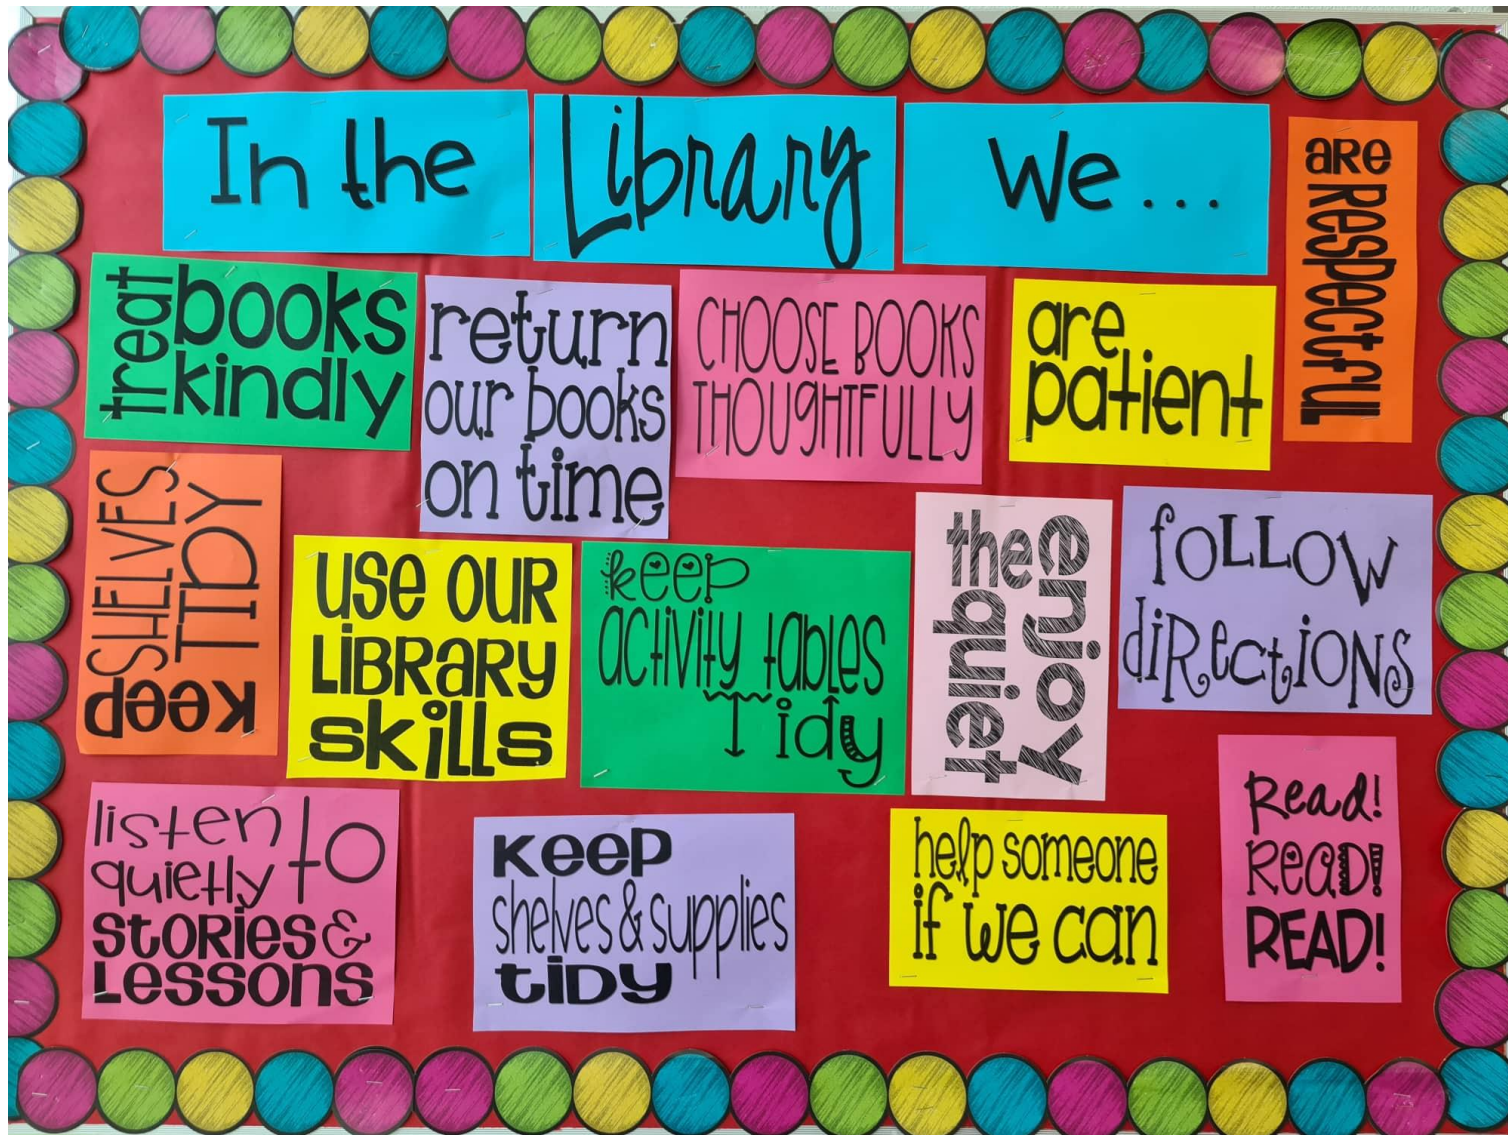 In the Library We ...
are
Respectful
treat
books
kindly
return
our books
on time
CHOOSE BOOKS
THOUGHTFULLY
are
patient
keep
SHELVES
TIDY
use OUR
LiBRARY
skills
keep
activity tables
Tidy
enjoy
the quiet
foLLOW
diRectiONS
listen to
quietly
stories &
Lessons
keep
shelves & supplies
tidy
help someone
if we can
Read!
ReaD!
READ!